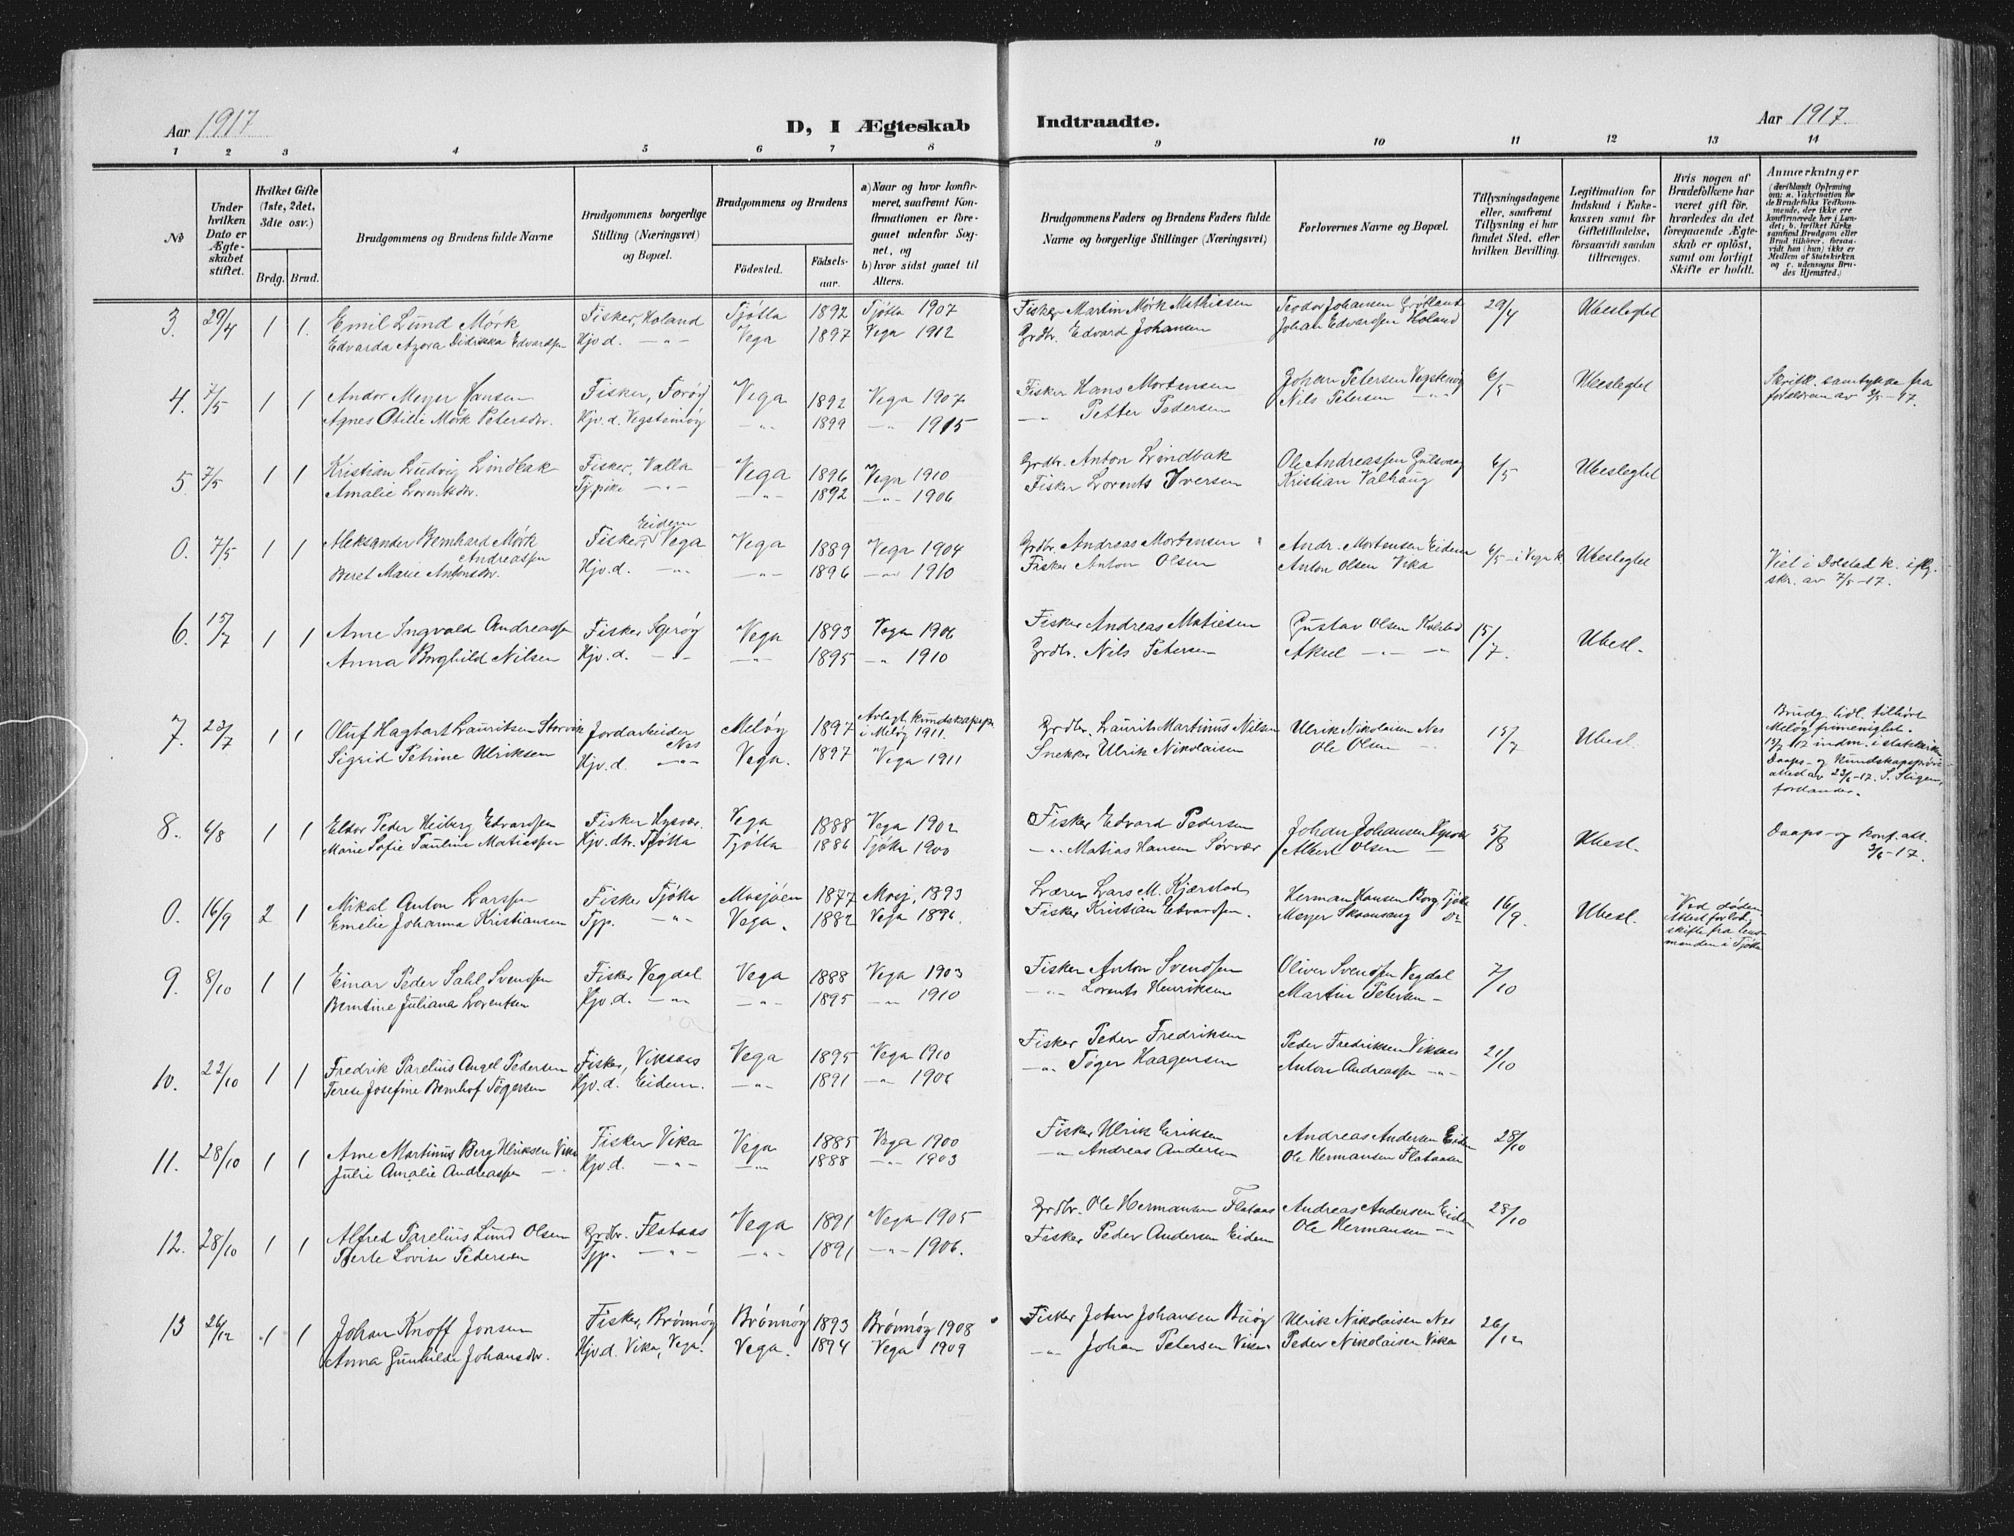 Aar 1917
D, I Ægteskab Indtraadte.
Aar 1917.
1 2 3 4 5 6 7 8 9 10 11 12 13 14
No
Under hvilken Dato er Ægteskabet stiftet.
Hvilket Gifte (1ste, 2det, 3dte osv.)
Brdg. Brud.
Brudgommens og Brudens fulde Navne
Brudgommens borgerlige Stilling (Næringsvei) og Bopæl.
Brudgommens og Brudens
Fødested.
Fødselsaar.
a) Naar og hvor konfirmeret, saafremt Konfirmationen er foregaaet udenfor Sognet, og
b) hvor sidst gaaet til Alters.
Brudgommens Faders og Brudens Faders fulde Navne og borgerlige Stillinger (Næringsvei)
Forlovernes Navne og Bopæl.
Tillysningsdagene eller, saafremt Tillysning ei har fundet Sted, efter hvilken Bevilling.
Legitimation for Indskud i Enkekassen samt for Giftetilladelse, forsaavidt saadan tiltrænges.
Hvis nogen af Brudefolkene har været gift før, hvorledes da det foregaaende Ægteskab er opløst, samt om lovligt Skifte er holdt.
Anmærkninger
3. 29/4 1 1. Emil Lund Mørk Fisker, Holand Tjøtta 1892 Tjøtta 1907 Fisker Martin Mørk Mathiesen Teodor Johansen Grøtland 29/4 Ubeslegtet
Edvarda Azora Didrikka Edvardsen Hjv.d. -"- Vega 1897 Vega 1912 Grdbr. Edvard Johansen Johan Edvardsen Holand
4. 7/5 1 1 Andor Meyer Hansen Fisker, Forøy Vega 1892 Vega 1907 Fisker Hans Mortensen Johan Petersen Vegsteinøy 6/5 Ubeslegtet Skriftl. samtykke fra
Agnes Otilie Mørk Petersdtr. Hjv.d. Vegsteinøy -"- 1899 -"- 1915 -"- Petter Pedersen Nils Petersen -"- forældrene av
5 7/5 1 1 Kristian Ludvig Lindbak Fisker, Valla Vega 1896 Vega 1910 Grdbr. Anton Lindbak Ole Andreassen 6/5 Ubeslegtet
Amalie Lorentsdtr. Tj.pike -"- -"- 1892 -"- 1906 Fisker Lorents Iversen Kristian Valhaug
0. 7/5 1 1 Aleksander Bernhard Mørk Andreassen Fisker, Eidem Vega Vega 1889 Vega 1904 Grdbr. Andreas Mortensen Andr. Mortensen Eidem 6/5 - i Vega k. Ubeslegtet Viet i Dolstad k. iflg.
Beret Marie Antonsdtr. Hjv.d. -"- -"- 1896 -"- 1910 Fisker Anton Olsen Anton Olsen Vika skr. av 7/5-17.
6. 15/7 1 1 Arne Ingvald Andreassen Fisker Igerøy Vega 1893 Vega 1906 Fisker Andreas Matiesen Gustav Olsen 15/7. Ubesl.
Anna Borghild Nilsen Hjv.d. -"- -"- 1895 -"- 1910 Grdbr. Nils Petersen Aksel -"- -"-
7. 23/7 1 1 Oluf Hagbart Lauritsen Storvik Jordarbeider Nes Meløy 1897 Avlagt kundskapspr. i Meløy 1911. Grdbr. Laurits Martinus Nilsen Ulrik Nikolaisen Nes 15/7 Ubesl. Brudg. tidl. tilhørt
Sigrid Petrine Ulriksen Hjv.d. -"- Vega. 1897 Vega 1911 Snekker Ulrik Nikolaisen Ole Olsen -"- Meløy frimenighet.
15/7 17 indm. i statskirken
Daaps- og kundskapsprøve-
attest av 23/6-17. S. Stigen,
forstander.
8. 6/8 1 1 Eldor Peder Heiberg Edvardsen Fisker Hysvær. Vega 1888 Vega 1902 Fisker Edvard Pedersen Johan Johansen Hysvær 5/8 Ubesl. Daaps- og konf. att.
Marie Sofie Pauline Matiessen Hjv.dtr. Tjøtta Tjøtta 1886 Tjøtta 1900 -"- Matias Hansen Sørvær Albert Olsen -"-
0. 16/9 2 1 Mikal Anton Larssen Fisker Tjøtta Mosjøen 1877 Mosj. 1893 Lærer Lars M. Kjærstad Herman Hansen Borg Tjøtta 16/9. Ubesl. Ved døden.
Emelie Johanna Kristiansen Tjp. -"- Vega. 1882 Vega 1896. Fisker Kristian Edvardsen. Meyer Skaansang Do Attest for lovl.
skifte fra lens-
manden i Tjøtta
9. 8/10 1 1 Einar Peder Dahl Svendsen Fisker Vegdal Vega 1888 Vega 1903 Fisker Anton Svendsen Oliver Svendsen Vegdal 7/10
Berntine Juliana Lorentsen Hjv.d. -"- -"- 1895 -"- 1910 -"- Lorents Henriksen Martin Petersen -
10. 22/10 1 1 Fredrik Parelius Angel Pedersen Fisker, Viksaas Vega 1895 Vega 1910 Fisker Peder Fredriksen Peder Fredriksen Viksaas 21/10
Terese Josefine Bernhof Tøgersen Hjv.d. Eidem. -"- 1891 -"- 1906 -"- Tøger Haagensen Anton Andreassen -"-
11. 28/10 1 1 Arne Martinus Berg Ulriksen Vika Fisker Vika Vega 1885 Vega 1900 Fisker Ulrik Eriksen Andreas Andersen Eidem 28/10
Julie Amalie Andreassen Hjv.d. -"- -"- 1888 -"- 1903 -"- Andreas Andersen Ole Hermansen Flataasen
12. 28/10 1 1 Alfred Parelius Lund Olsen Grdbr. Flataas Vega 1891 Vega 1905 Grdbr. Ole Hermansen Flataas Andreas Andersen Eidem 28/10
Berte Lovise Pedersen Tjp. -"- -"- 1891 -"- 1906. Fisker Peder Andersen Eidem Ole Hermansen -"-
13 26/12 1 1 Johan Knoff Jonsen Fisker, Brønnøy Brønnøy 1893 Brønnøy 1908 Fisker John Johansen Buøy Ulrik Nikolaisen Nes 26/12
Anna Gunhilde Johansdtr. Hjv.d. Vika, Vega. Vega. 1894 Vega 1909 -"- Johan Petersen Vika. Peder Nikolaisen Vika